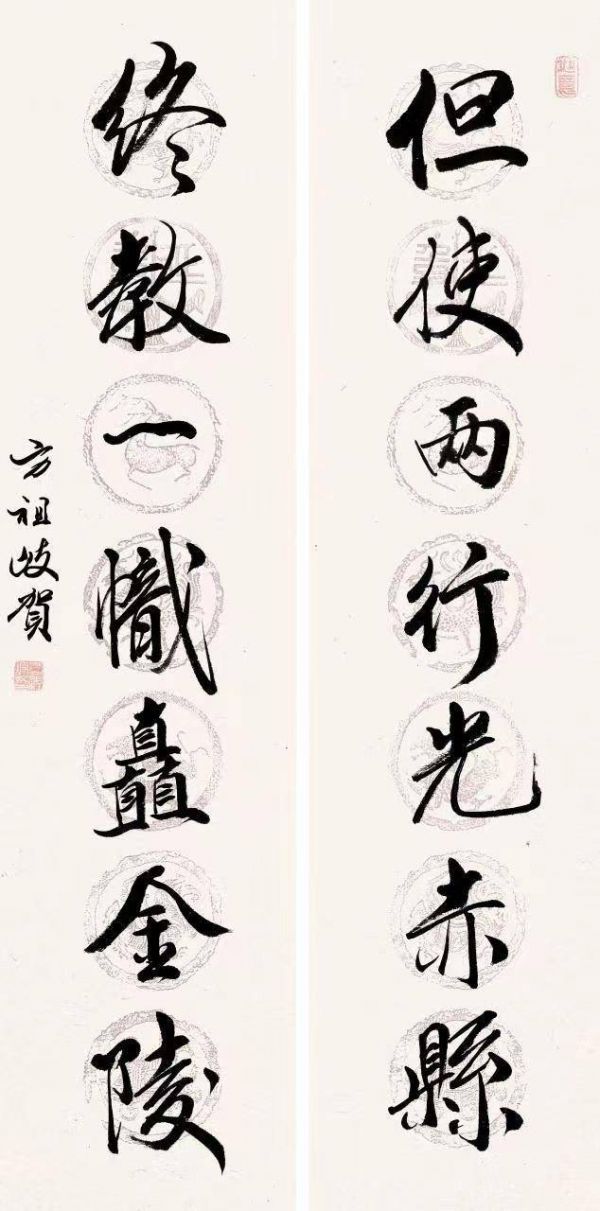 但使两行光赤縣
終教一幟矗金陵
方祖岐賀